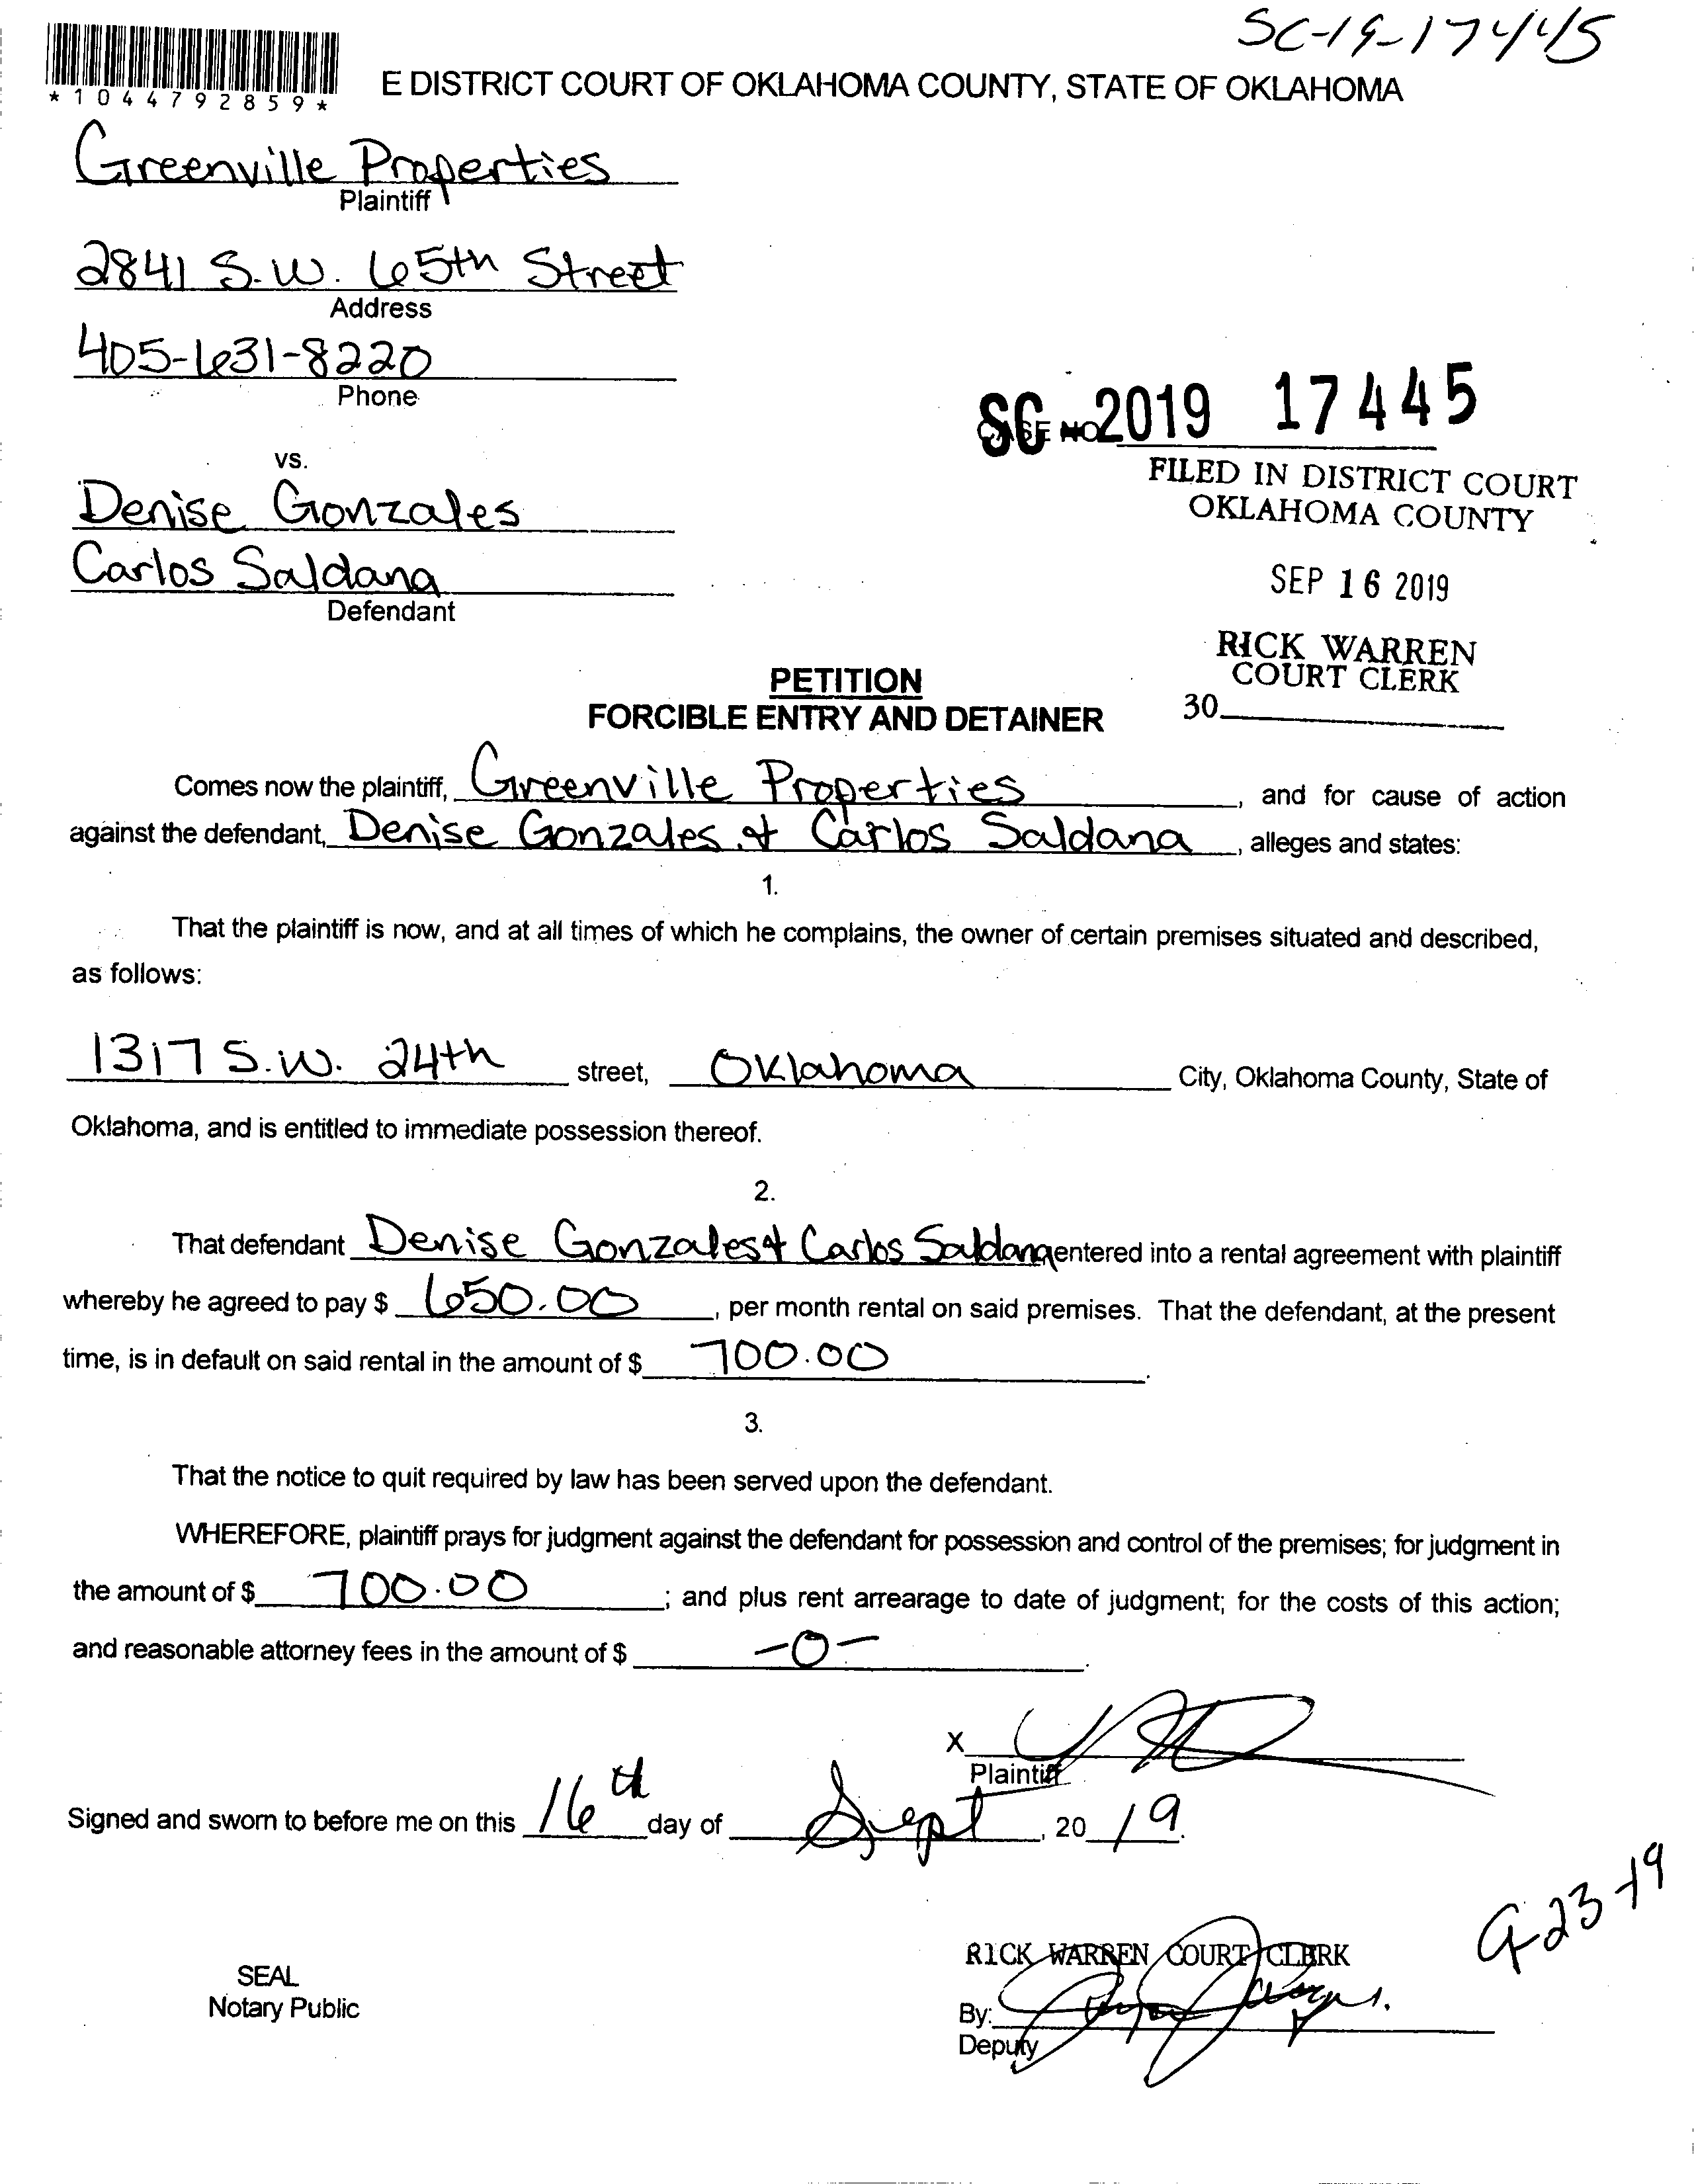 SC-19-17445
*1044792859*
E DISTRICT COURT OF OKLAHOMA COUNTY, STATE OF OKLAHOMA
Greenville Properties
Plaintiff
2841 S.W. 65th Street
Address
405-631-8220
Phone
SC 2019 17445
CASE NO.
FILED IN DISTRICT COURT
OKLAHOMA COUNTY
vs.
Denise Gonzales
Carlos Saldana
Defendant
SEP 16 2019
RICK WARREN
COURT CLERK
30
PETITION
FORCIBLE ENTRY AND DETAINER
Comes now the plaintiff, Greenville Properties, and for cause of action
against the defendant, Denise Gonzales & Carlos Saldana, alleges and states:
1.
That the plaintiff is now, and at all times of which he complains, the owner of certain premises situated and described,
as follows:
1317 S.W. 24th street, Oklahoma City, Oklahoma County, State of
Oklahoma, and is entitled to immediate possession thereof.
2.
That defendant Denise Gonzales & Carlos Saldana entered into a rental agreement with plaintiff
whereby he agreed to pay $ 650.00, per month rental on said premises. That the defendant, at the present
time, is in default on said rental in the amount of $ 700.00.
3.
That the notice to quit required by law has been served upon the defendant.
WHEREFORE, plaintiff prays for judgment against the defendant for possession and control of the premises; for judgment in
the amount of $ 700.00; and plus rent arrearage to date of judgment; for the costs of this action;
and reasonable attorney fees in the amount of $ -0-.
X
Plaintiff
Signed and sworn to before me on this 16th day of Sept, 2019.
9-23-19
RICK WARREN COURT CLERK
SEAL
Notary Public
By:
Deputy